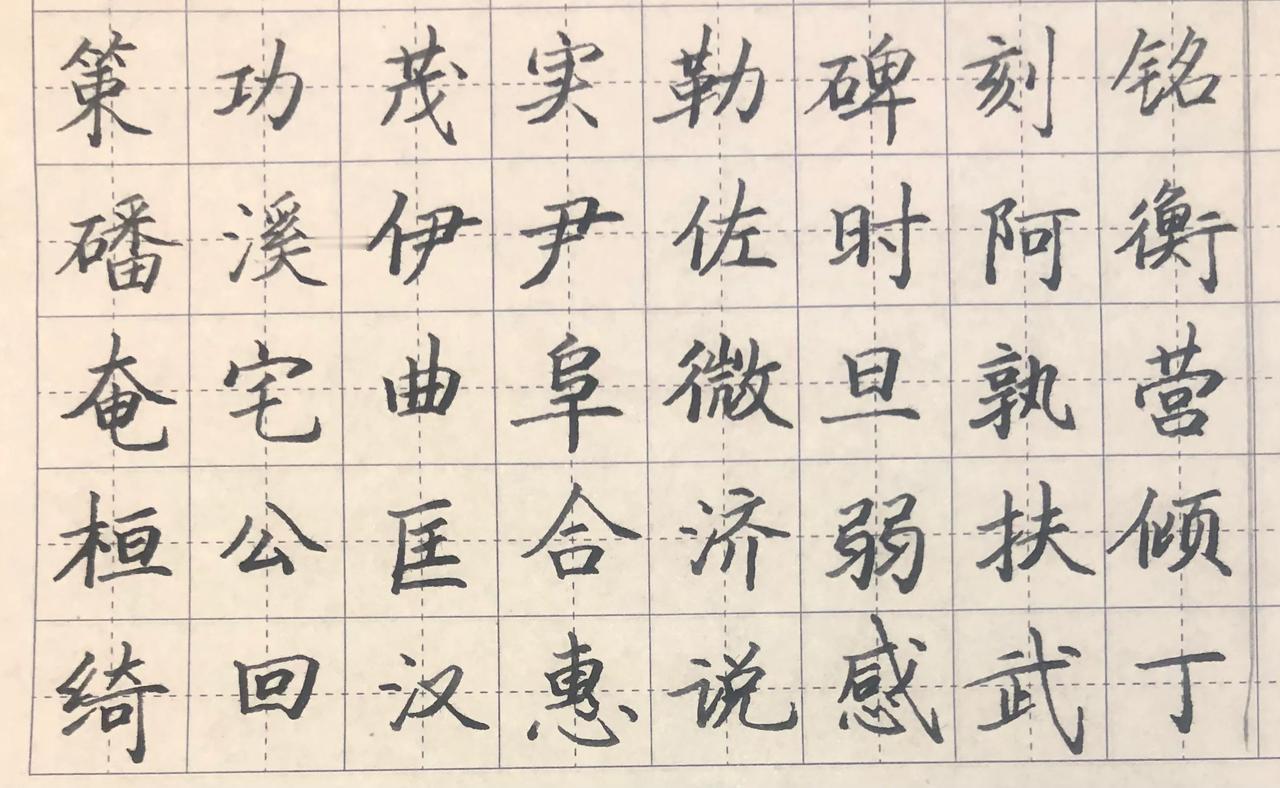 策功茂实勒碑刻铭
磻溪伊尹佐时阿衡
奄宅曲阜微旦孰营
桓公匡合济弱扶倾
绮回汉惠说感武丁